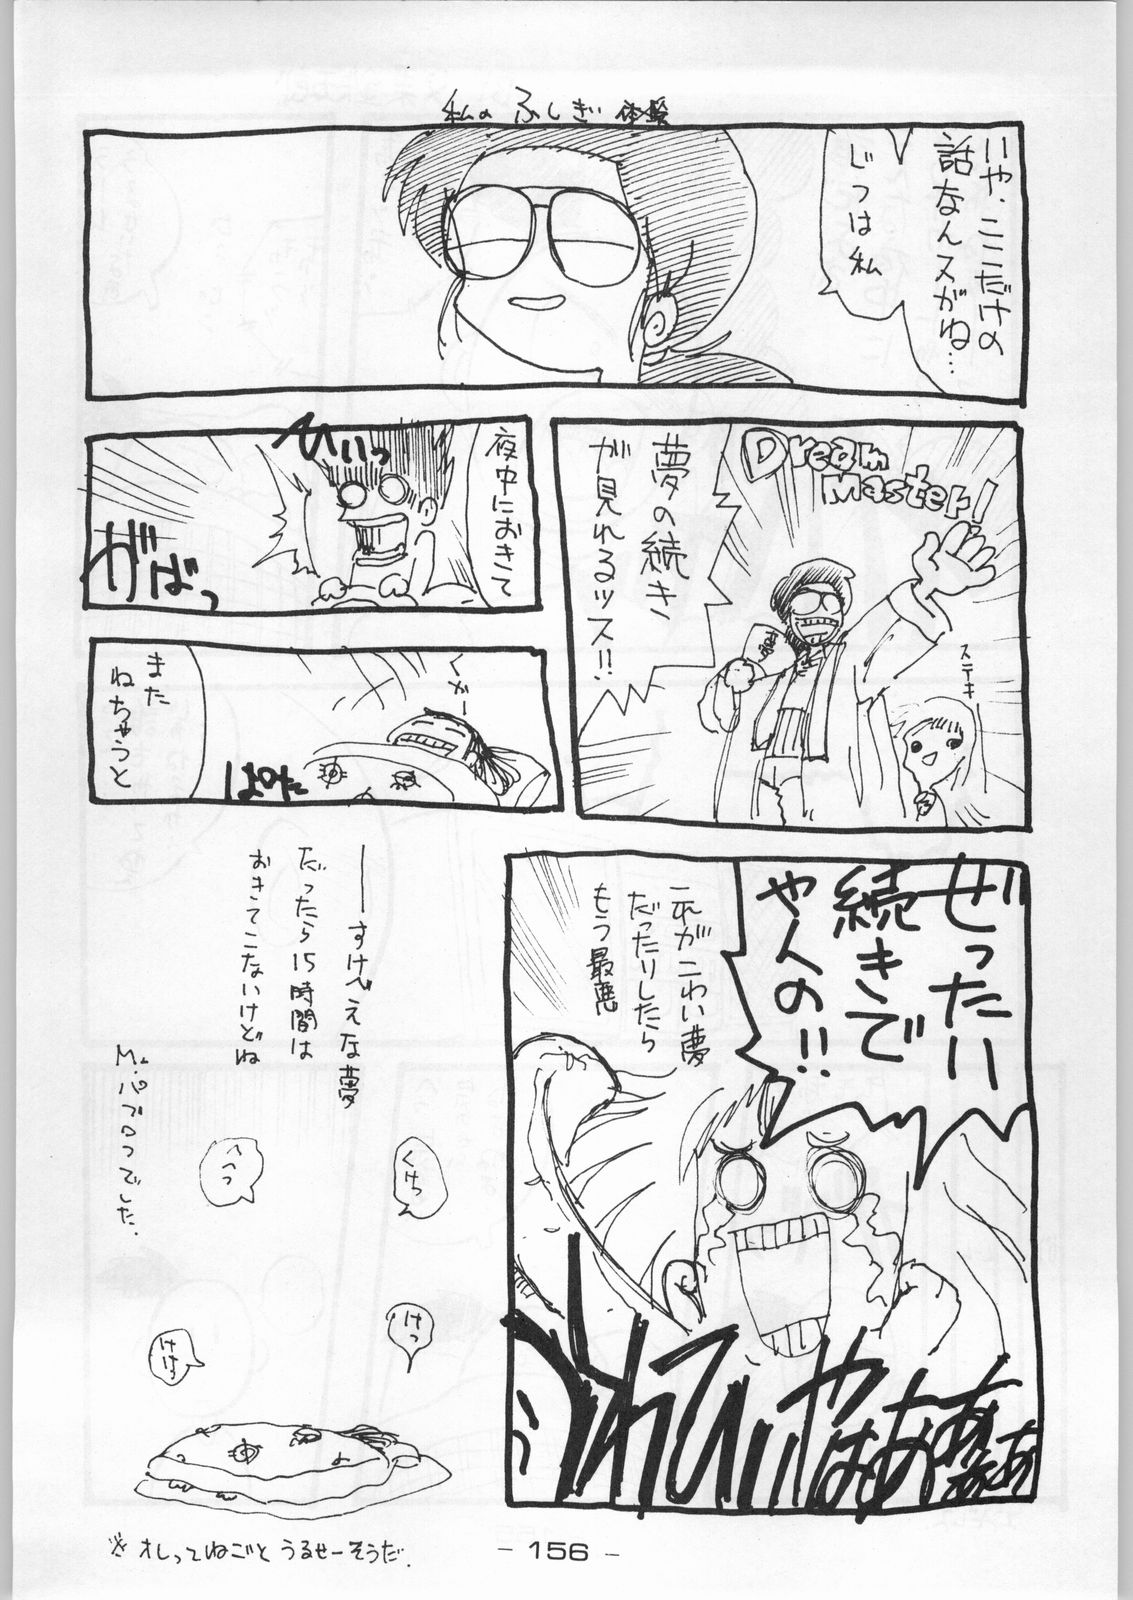 私の ふしぎ 体験
いや、ここだけの
話なんスがね…
じつは私
Dream
Master!
夢の続き
が見れるッス!!
ステキ
夜中におきて
ひいっ
がばっ
また
ねちゃうと
くかー
ぱたた
ぜったい
続きで
やんの!!
これがこわい夢
だったりしたら
もう最悪
ひいやはああああ
――すけべえな夢
だったら15時間は
おきてこないけどね
Mr.パブロってでした.
くけっ
へへっ
けっ
けけっ
※オレってねごと うるせーそうだ.
- 156 -